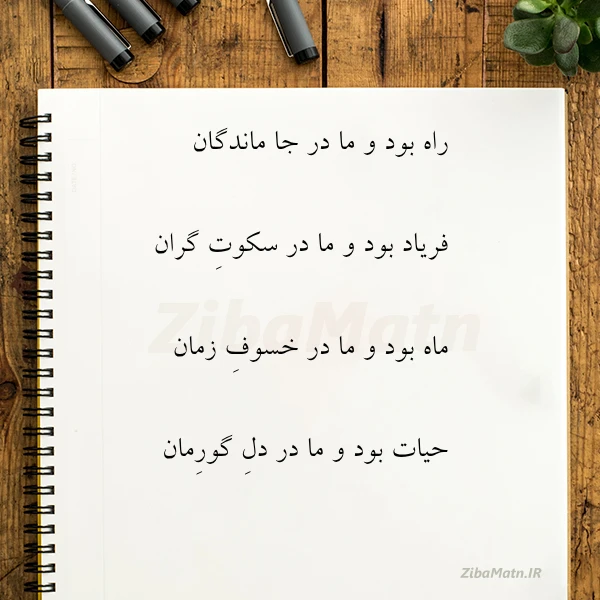 راه بود و ما در جا ماندگان
فریاد بود و ما در سکوتِ گران
ZibaMatn
ماه بود و ما در خسوفِ زمان
حیات بود و ما در دلِ گورِمان
ZibaMatn.IR